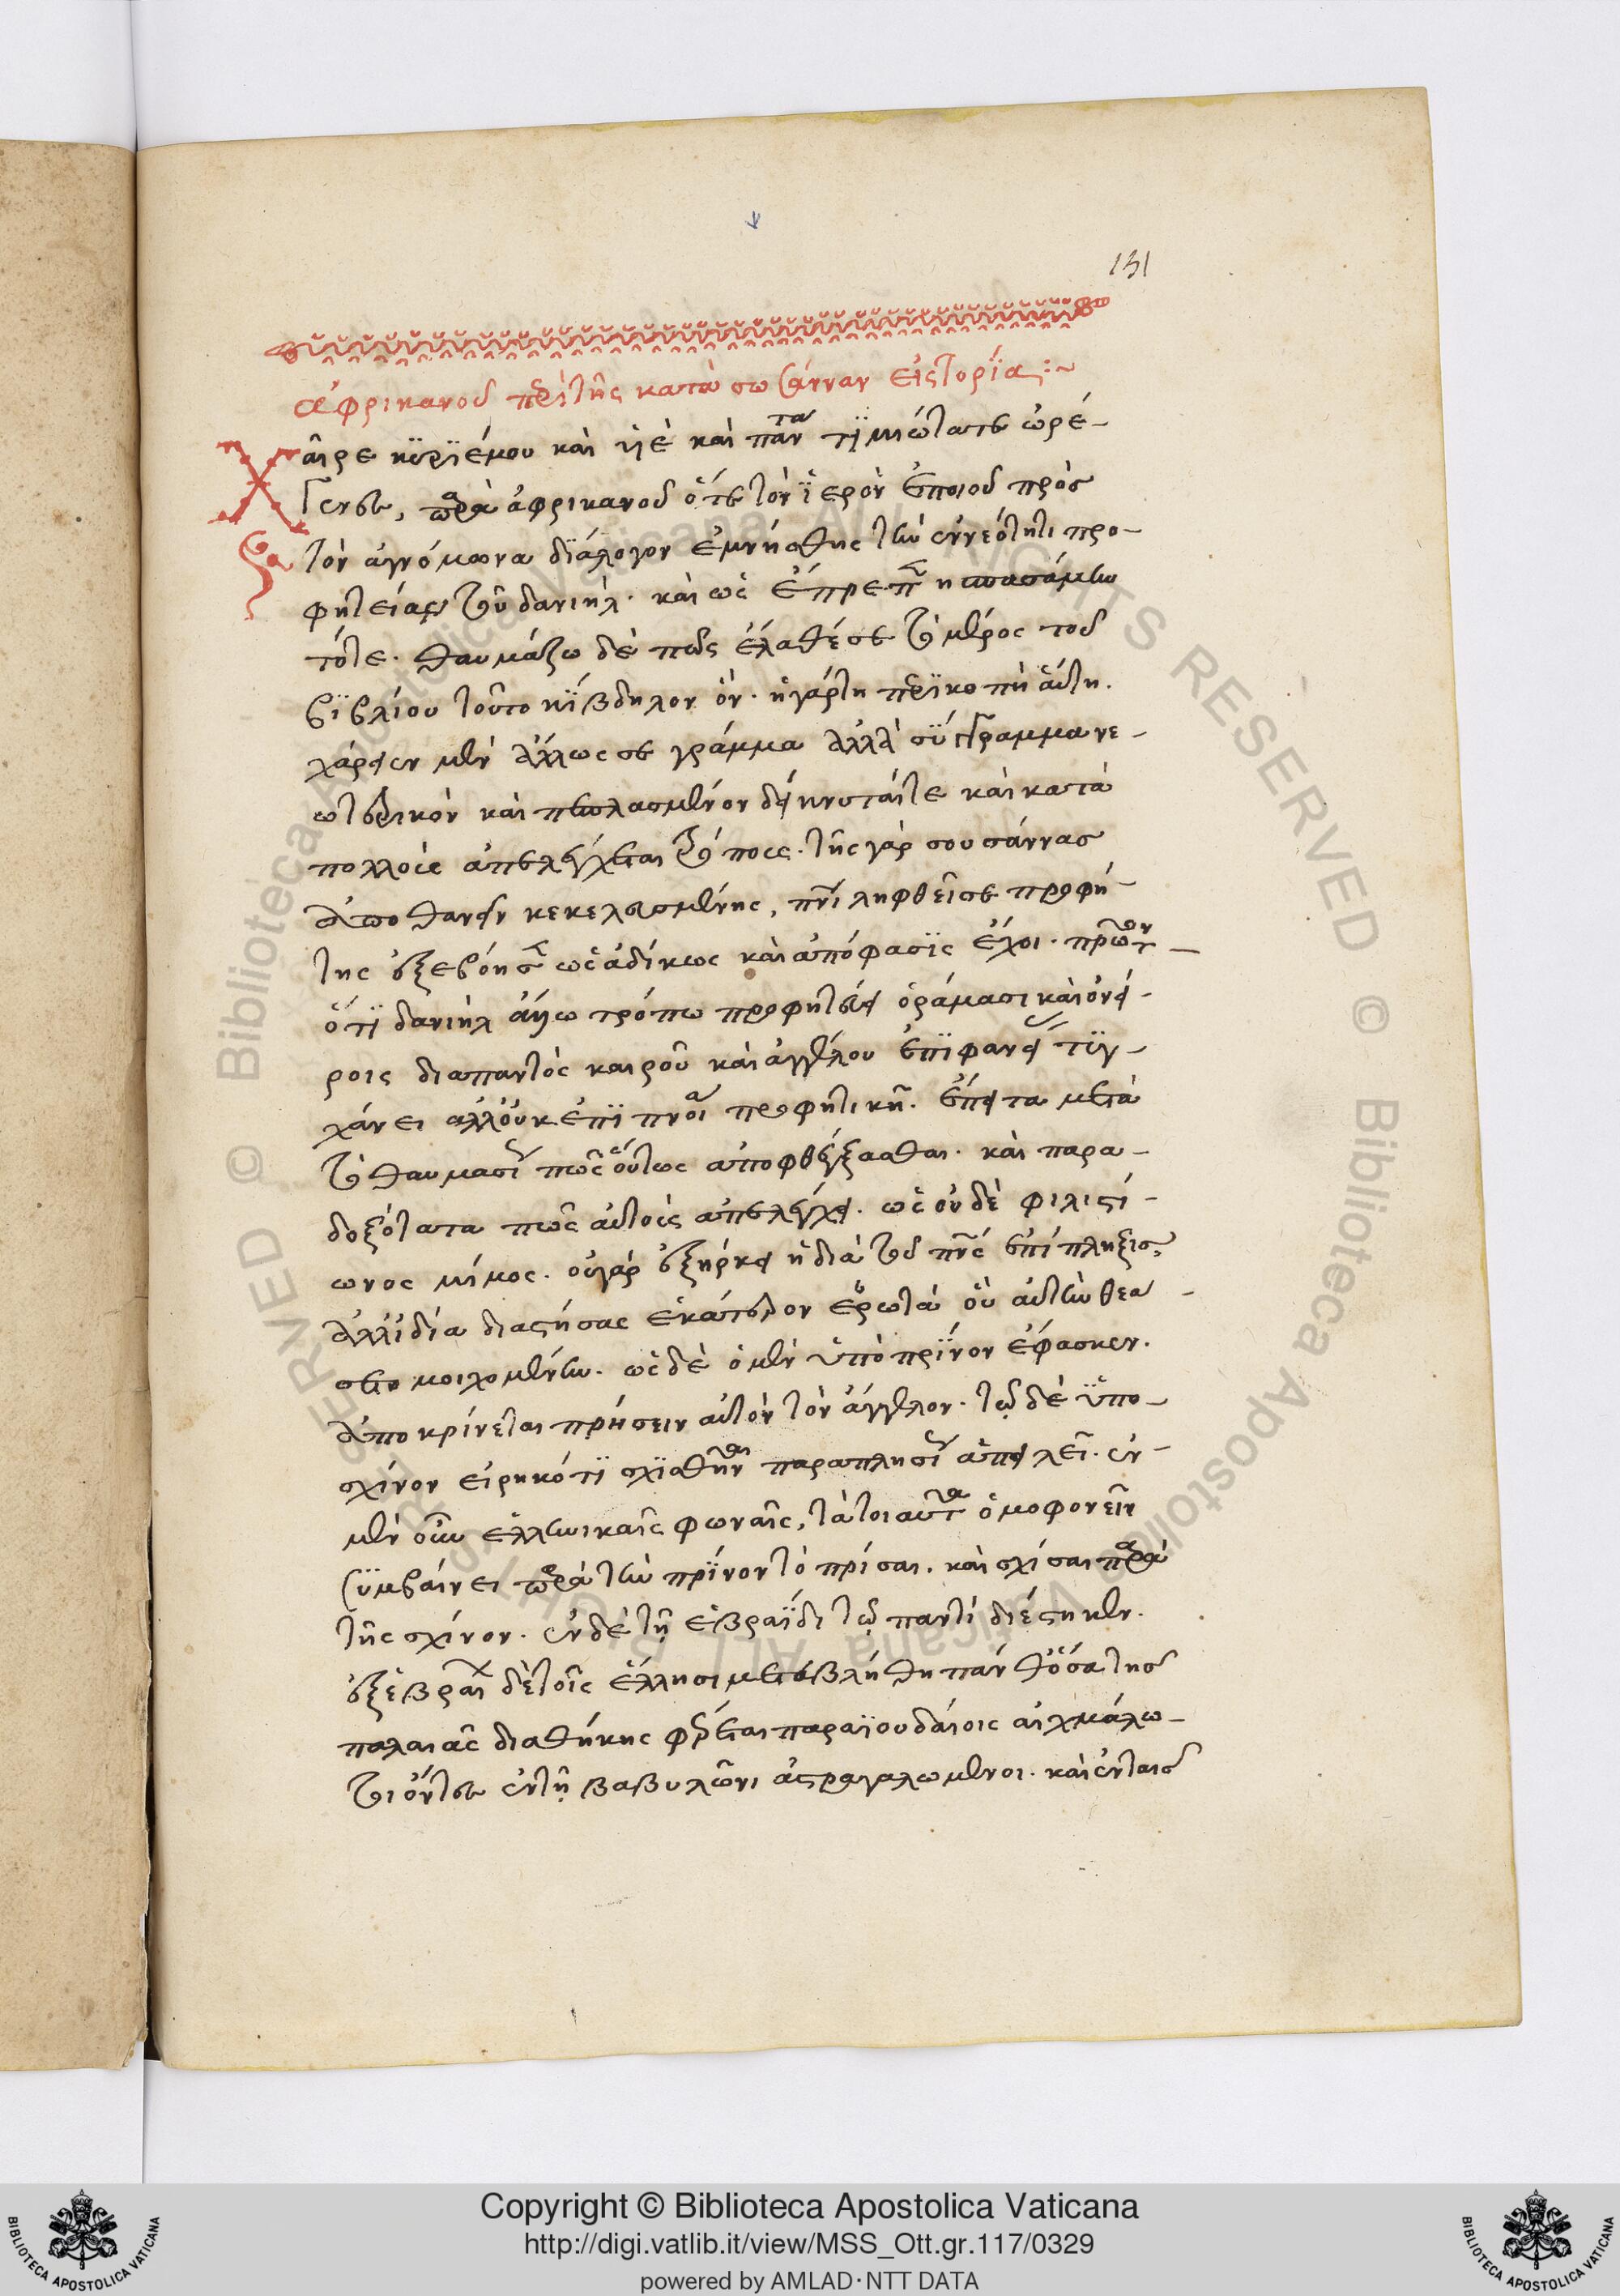 131
ἀφρικανοῦ περὶ τῆς κατὰ σωσάνναν εἰστορΐας:~
Χαῖρε κύριέ μου καὶ ὑϊὲ καὶ πάντα τϊμιώτατε ὠρέ-
γενες, παρὰ ἀφρικανοῦ ὅτε τὸν ἱερὸν ἐποιοῦ πρὸς
τὸν ἀγνώμονα διάλογον ἐμνήσθης τὴν ἐν νεότητι προ-
φητείας τοῦ δανιὴλ. καὶ ὡς ἔπρεπεν ἠσπασάμην
τότε. θαυμάζω δὲ πῶς ἔλαθέ σε τὸ μέρος τοῦ
βϊβλίου τοῦτο κΐβδηλον ὄν. ἡ γάρ τη περϊκοπὴ αὕτη.
χάριεν μὲν ἄλλως σε γράμμα ἀλλὰ σύγγραμμα νε-
ωτερικὸν καὶ πεπλασμένον δείκνυταί τε καὶ κατὰ
πολλοὺς ἀπελέγχεται τρόπους. τῆς γὰρ σουσάννας
ἀποθανεῖν κεκελευσμένης, πνεύματι ληφθεὶς ὁ προφή-
της ἐξεβόησεν ὡς ἀδίκως καὶ ἀπόφασϊς ἔχοι. πρῶτον
ὅτϊ δανιὴλ ἄλλω τρόπω προφητεύει ὁράμασι καὶ ὀνεί-
ροις διαπαντὸς καιροῦ καὶ ἀγγέλου ἐπϊφανείας τϋγ-
χάνει ἀλλ' οὐκ ἐπϊ πνοία προφητικῆ. ἔπειτα μετὰ
τὸ θαυμασίως πῶς οὕτως ἀποφθέγξασθαι. καὶ παρα-
δοξότατα πῶς αὐτοὺς ἀπελέγχει. ὡς οὐδὲ φιλιστί-
ωνος μίμος. οὐ γὰρ ἐξήρκει ἡ διὰ τοῦ πνεύματος ἐπίπληξις,
ἀλλ' ἰδία διαστήσας ἑκάτερον ἐρωτᾶ ποῦ αὐτὴν θεά-
σετο μοιχομένην. ὡς δὲ ὁ μὲν ὑπὸ πρϊνον ἔφασκεν.
ἀποκρίνεται πρήσειν αὐτὸν τὸν ἄγγελον. τῷ δὲ ὑπο-
σχίνον εἰρηκότϊ σχϊσθῆναι παραπλησίως ἀπειλεῖ. ἐν
μὲν οὖν ἑλληνικαῖς φωναῖς, τὰ τοιαῦτα ὁμοφονεῖν
συμβαίνει παρὰ τὴν πρῖνον τὸ πρίσαι. καὶ σχίσαι παρὰ
τῆς σχίνον. ἐν δὲ τῇ ἑβραΐδι τῷ παντὶ διέστηκεν.
ἐξ ἑβραίων δὲ τοῖς ἕλλησι μετεβλήθη πάνθ' ὅσα τῆς
παλαιᾶς διαθήκης φέρεται παρὰ ϊουδαίοις αἰχμάλω-
τοι ὄντες ἐν τῇ βαβυλῶνι ἀστραγαλωμένοι. καὶ ἐν ταῖς
Copyright © Biblioteca Apostolica Vaticana
http://digi.vatlib.it/view/MSS_Ott.gr.117/0329
powered by AMLAD·NTT DATA